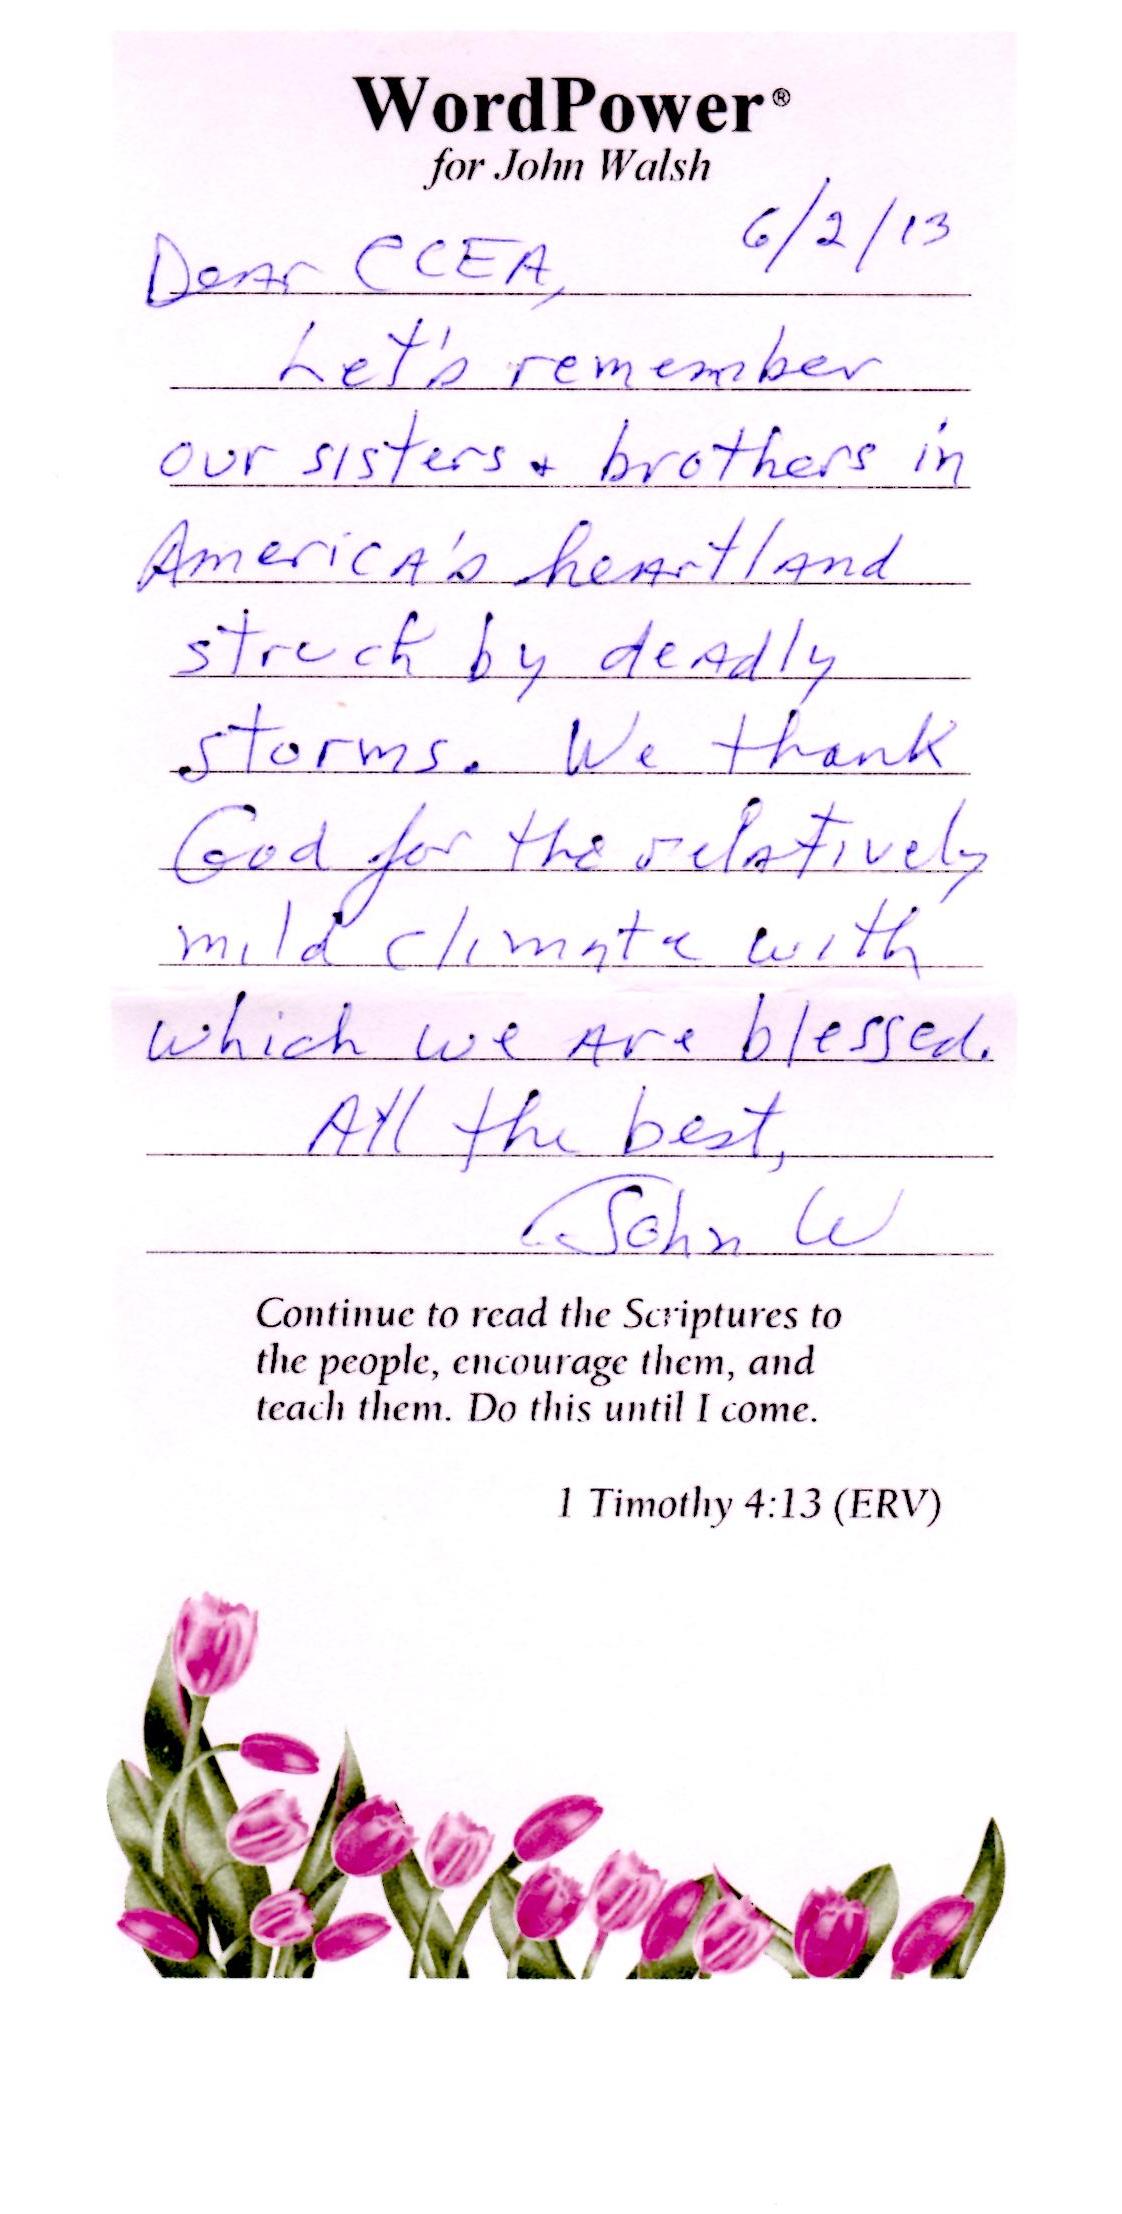 WordPower®
for John Walsh
6/2/13
Dear CCEA,
Let's remember
our sisters + brothers in
America's heartland
struck by deadly
storms. We thank
God for the relatively
mild climate with
which we are blessed.
All the best,
John W
Continue to read the Scriptures to
the people, encourage them, and
teach them. Do this until I come.
1 Timothy 4:13 (ERV)